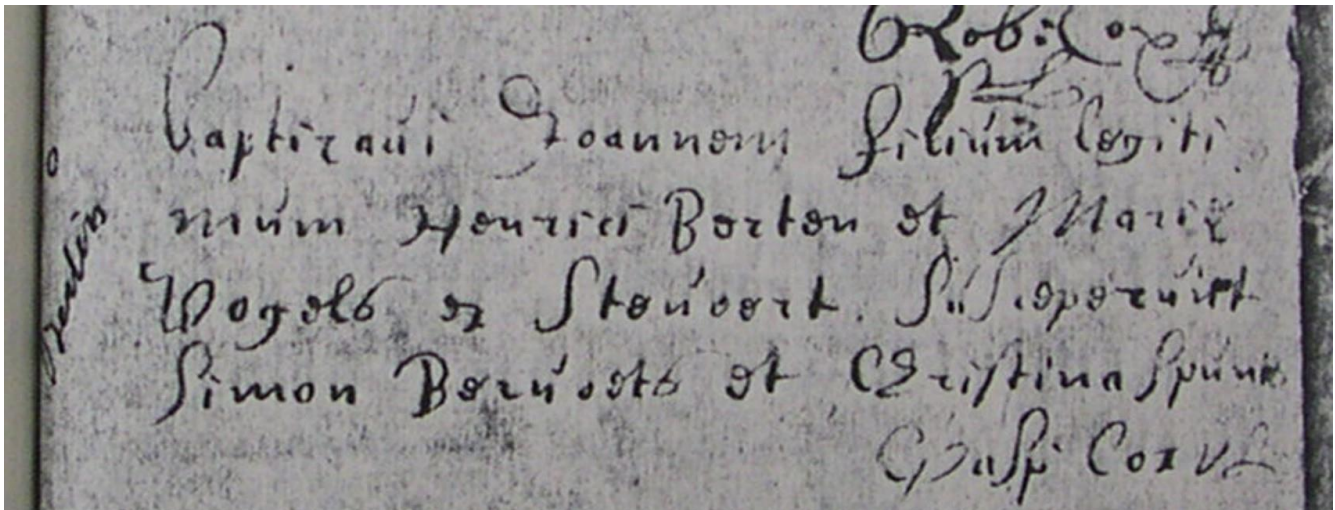 Rob: Cox
baptizavi Joannem filium legiti
mum Henrici Berten et Mariæ
Vogels ex Stevoort. Susceperunt
Simon Bervoets et Christina
Cox